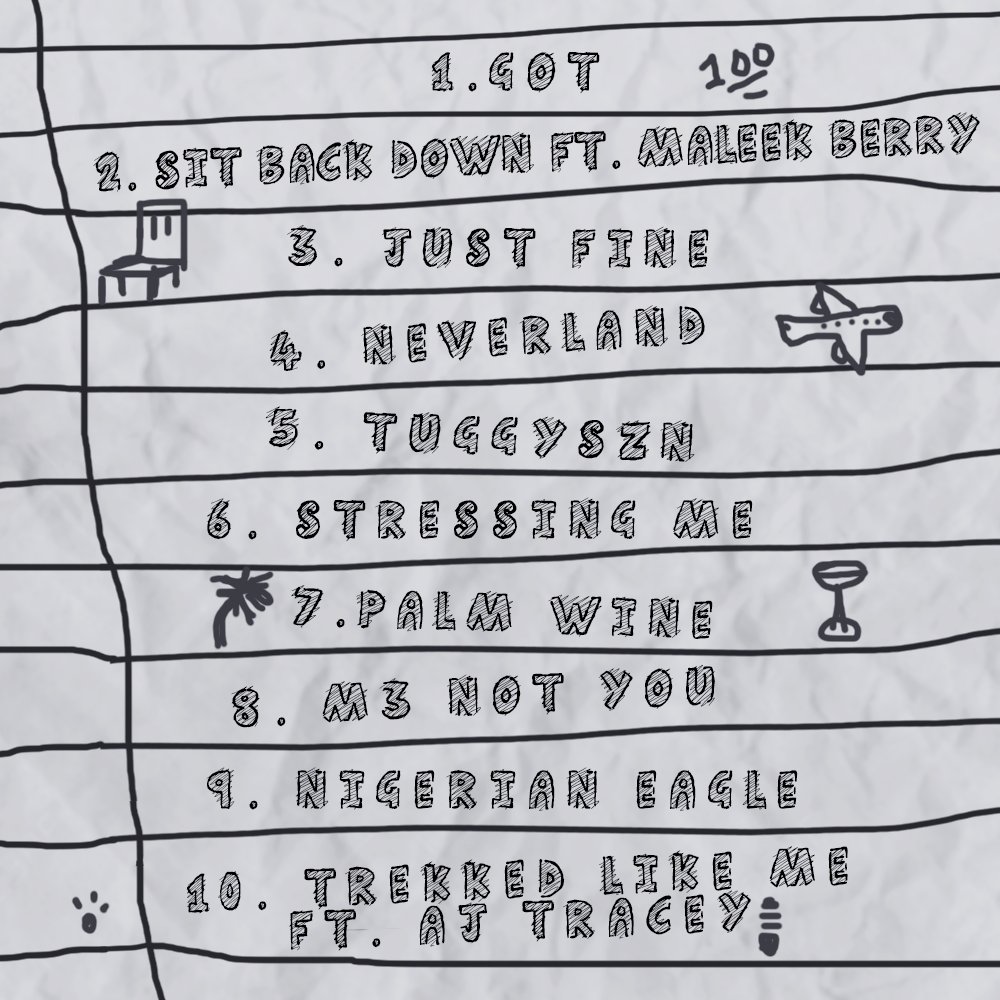 1.GOT 100
2. SIT BACK DOWN FT. MALEEK BERRY
3. JUST FINE
4. NEVERLAND
5. TUGGYSZN
6. STRESSING ME
7.PALM WINE
8. M3 NOT YOU
9. NIGERIAN EAGLE
10. TREKKED LIKE ME
FT. AJ TRACEY